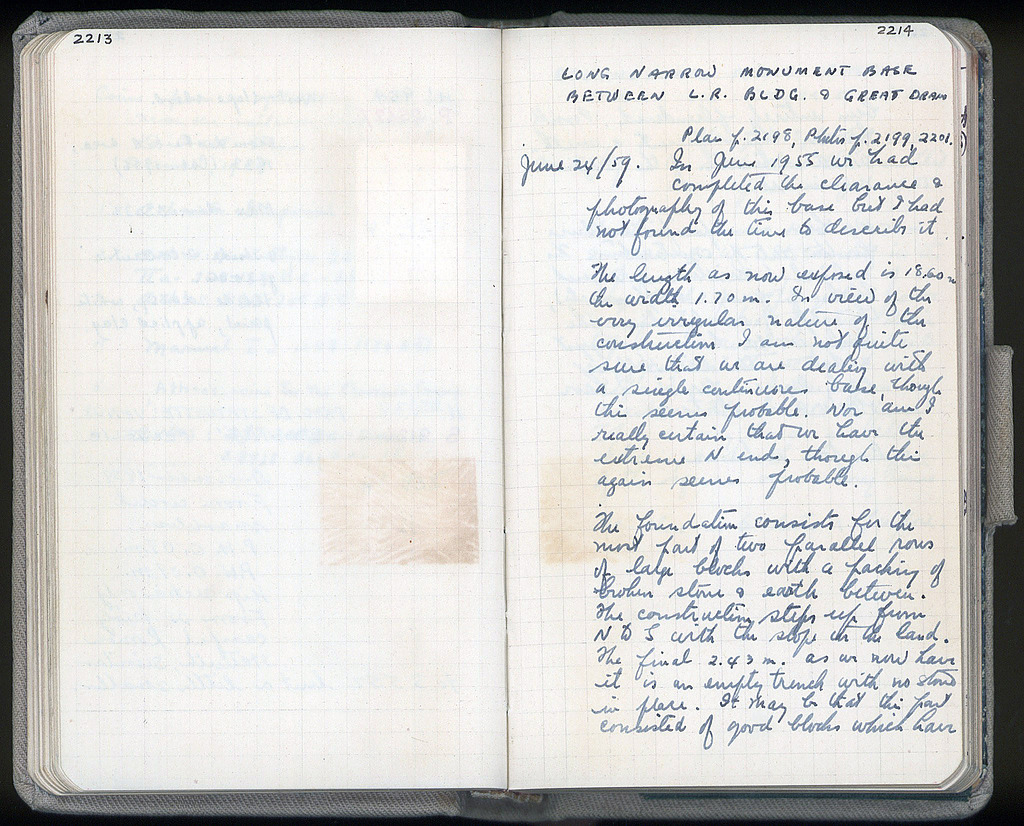 2213
2214
LONG NARROW MONUMENT BASE
BETWEEN L.R. BLDG. & GREAT DRAIN
Plan p. 2198, Photos p. 2199, 2201.
June 24/59. In June 1955 we had
completed the clearance &
photography of this base but I had
not found the time to describe it.
The length as now exposed is 18.60 m
the width 1.70 m. In view of the
very irregular nature of the
construction I am not quite
sure that we are dealing with
a single continuous base, though
this seems probable. Nor am I
really certain that we have the
extreme N end, though this
again seems probable.
The foundation consists for the
most part of two parallel rows
of large blocks with a packing of
broken stone & earth between.
The construction steps up from
N to S with the slope in the land.
The final 2.43 m. as we now have
it is an empty trench with no stone
in place. It may be that this part
consisted of good blocks which have